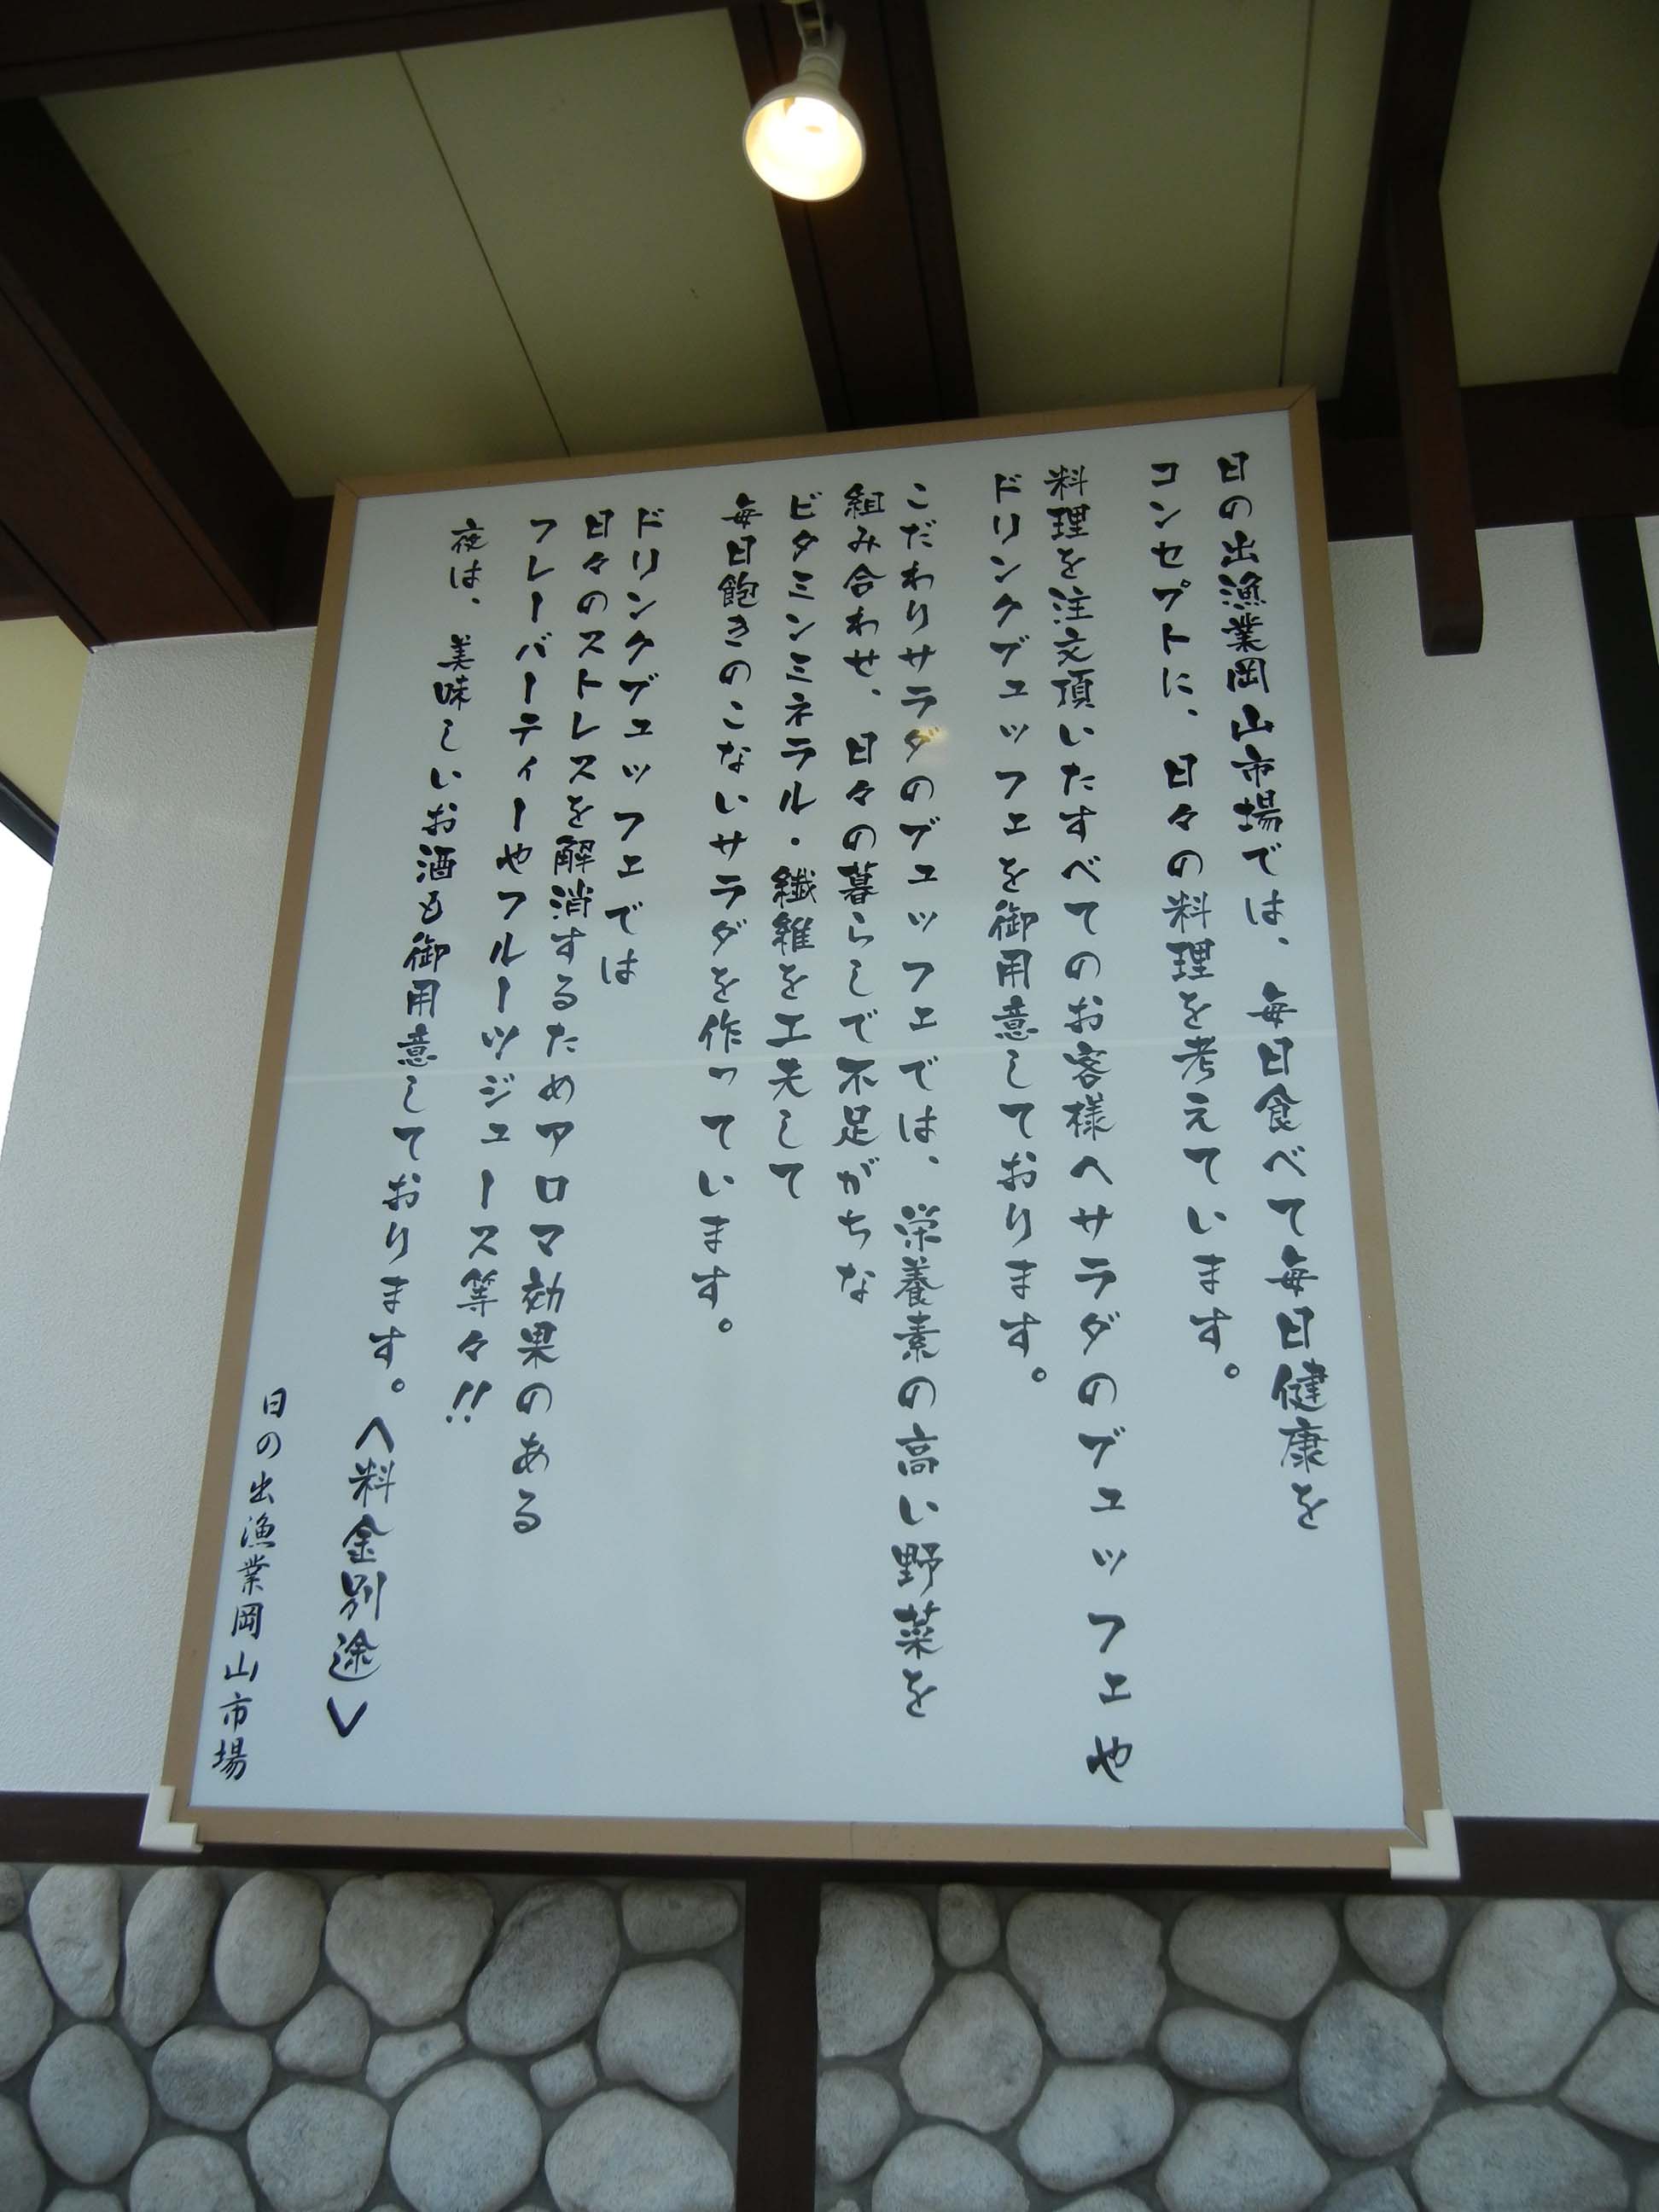 日の出漁業岡山市場では、毎日食べて毎日健康を
コンセプトに、日々の料理を考えています。
料理を注文頂いたすべてのお客様へサラダのブュッフェや
ドリンクブュッフェを御用意しております。
こだわりサラダのブュッフェでは、栄養素の高い野菜を
組み合わせ、日々の暮らしで不足がちな
ビタミンミネラル・繊維を工夫して
毎日飽きのこないサラダを作っています。
ドリンクブュッフェでは
日々のストレスを解消するためアロマ効果のある
フレーバーティーやフルーツジュース等々!!
夜は、美味しいお酒も御用意しております。<料金別途>
日の出漁業岡山市場